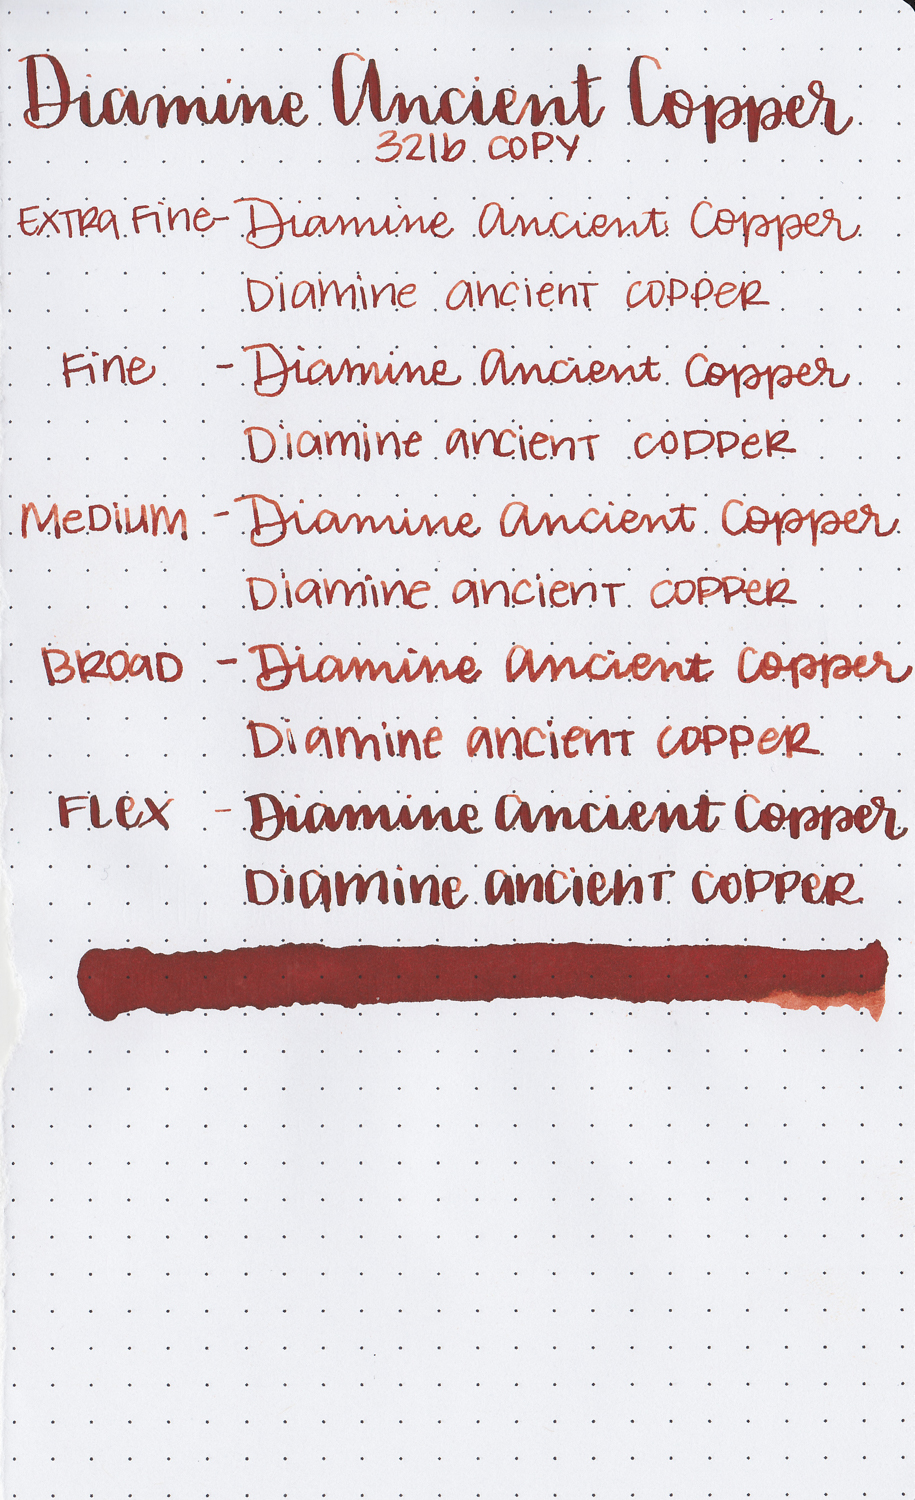 Diamine Ancient Copper
32lb COPY
EXTRA Fine - Diamine Ancient Copper
Diamine ancient COPPER
Fine - Diamine Ancient Copper
Diamine ancient COPPER
MeDium - Diamine Ancient Copper
Diamine ancient COPPER
BROAD - Diamine Ancient Copper
Diamine ancient COPPER
FLex - Diamine Ancient Copper
Diamine ancient COPPER